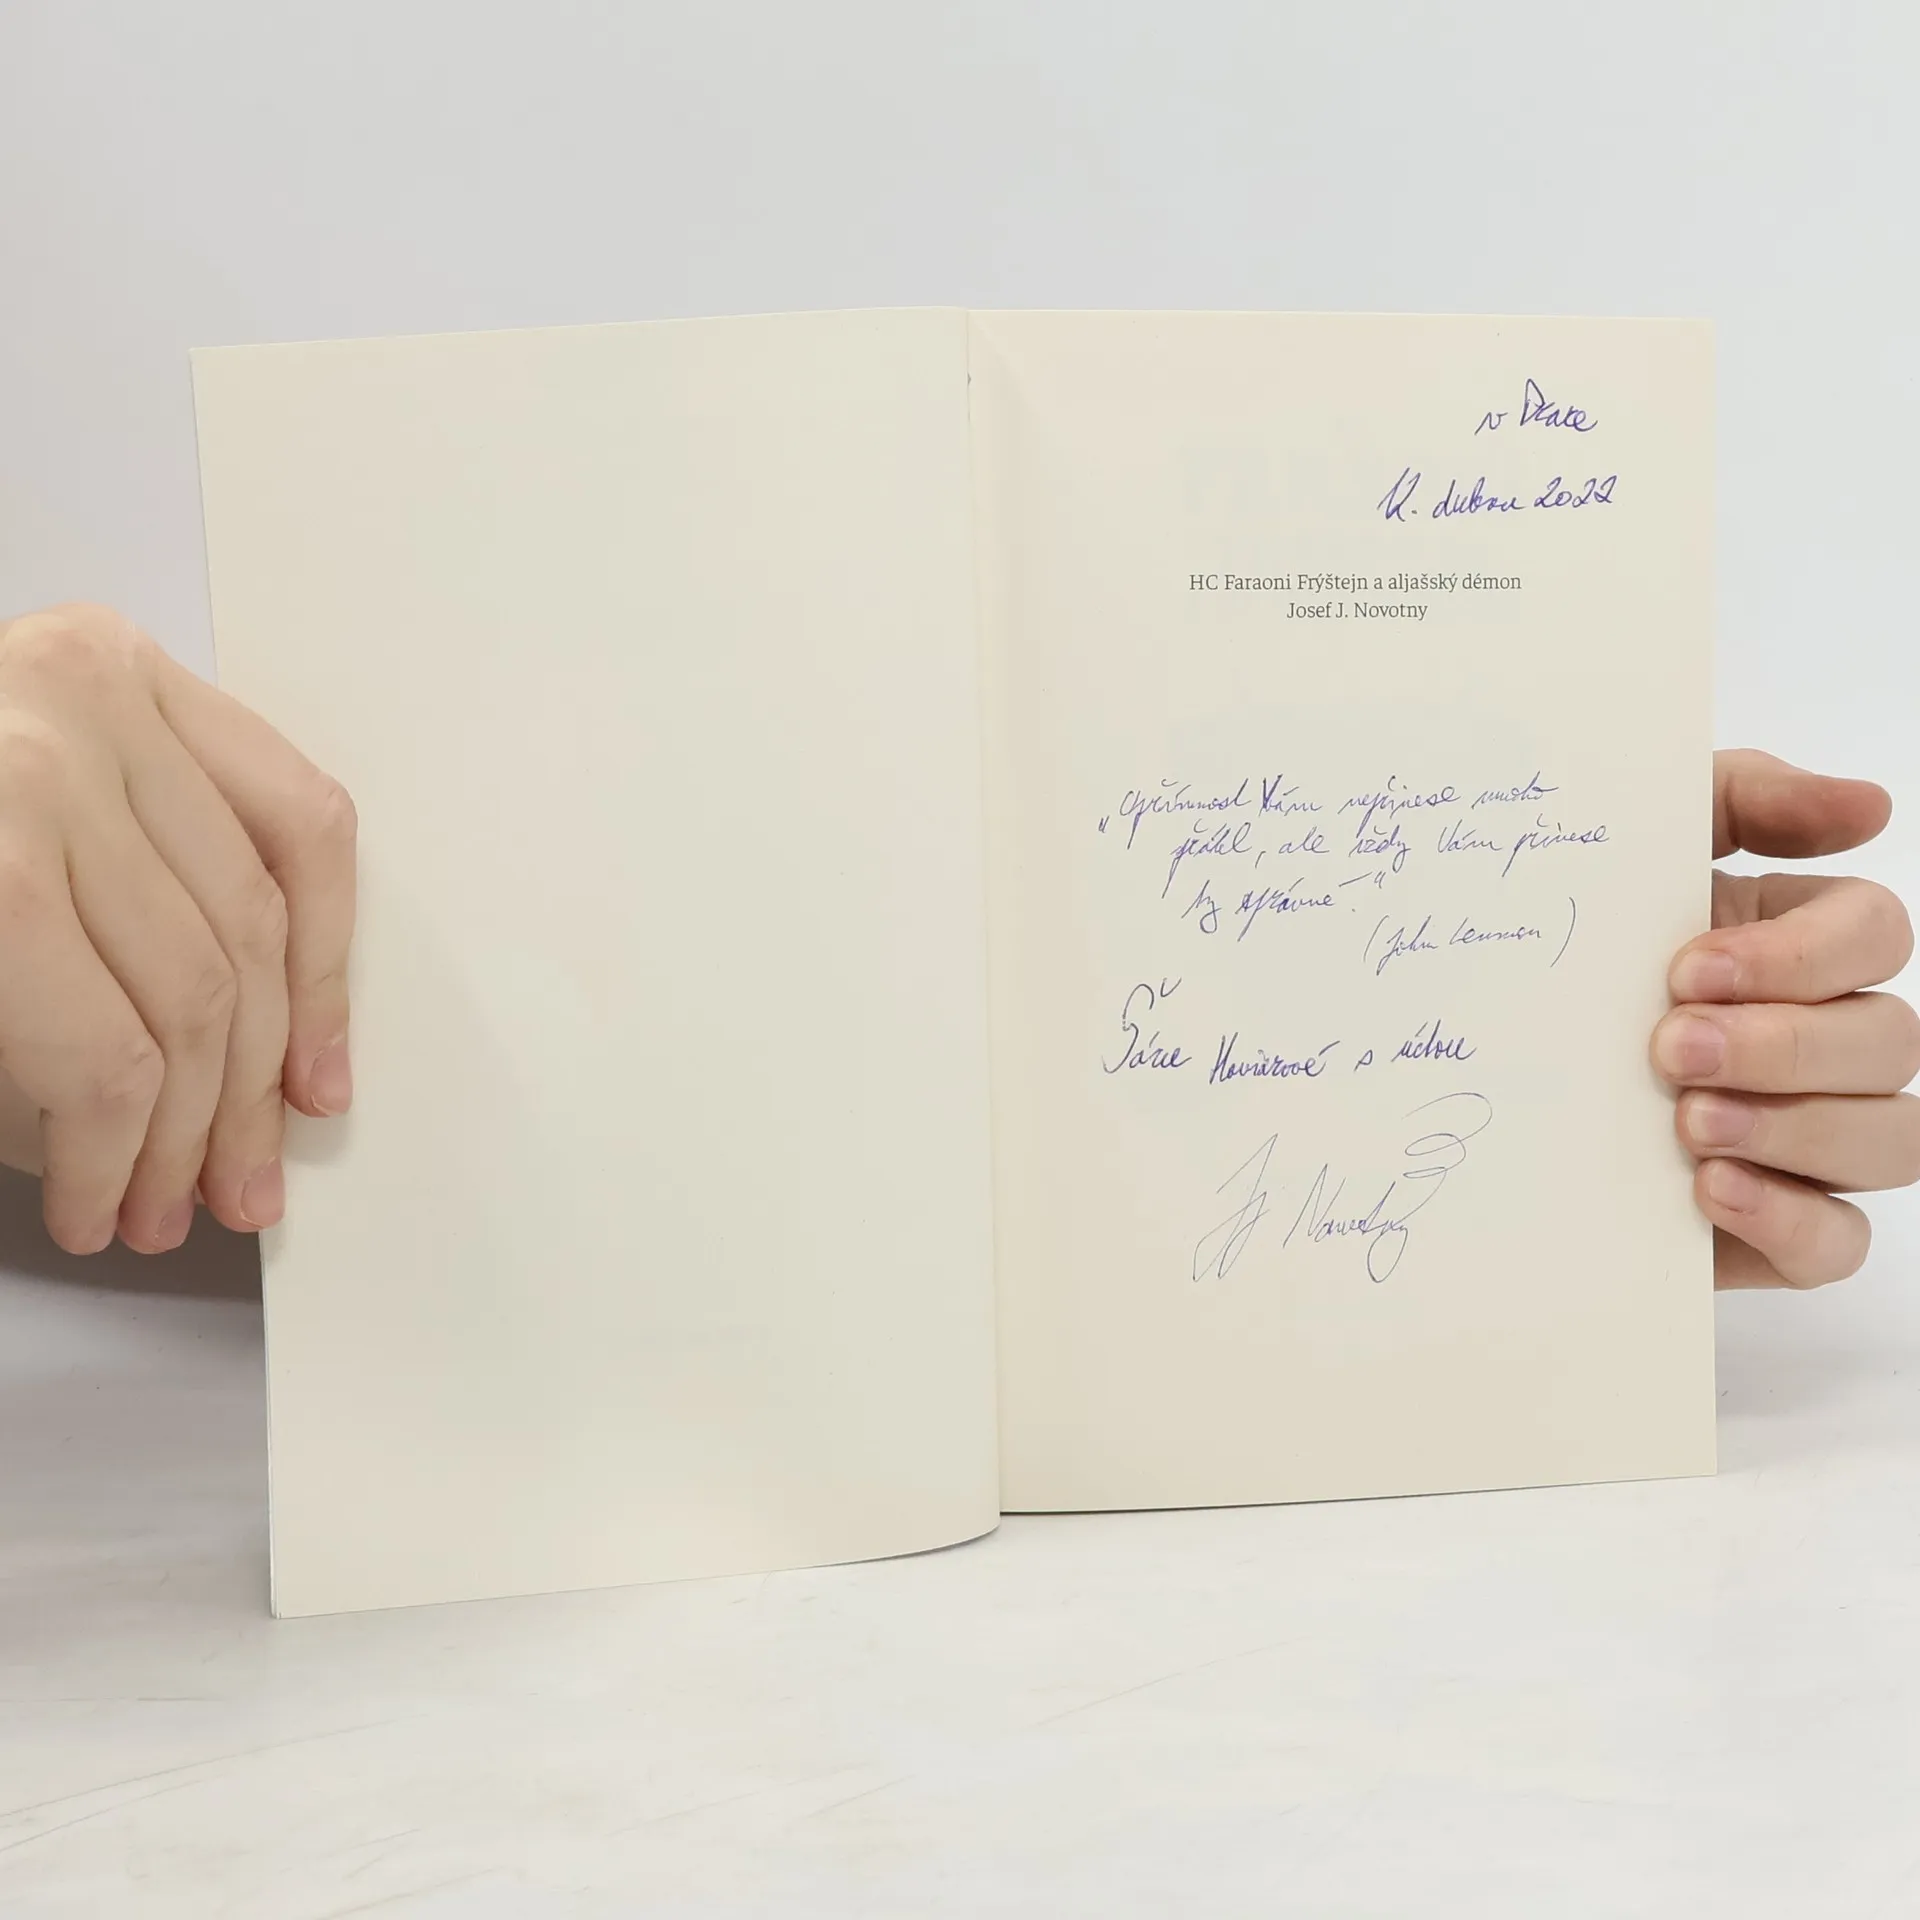 v Praze
12. dubna 2022
HC Faraoni Frýštejn a aljašský démon
Josef J. Novotny
„Upřímnost Vám nepřinese mnoho
přátel, ale vždy Vám přinese
ty správné."
(John Lennon)
Šárce Havířové s úctou
JJ Novotny